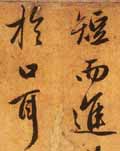 短而進
於口耳